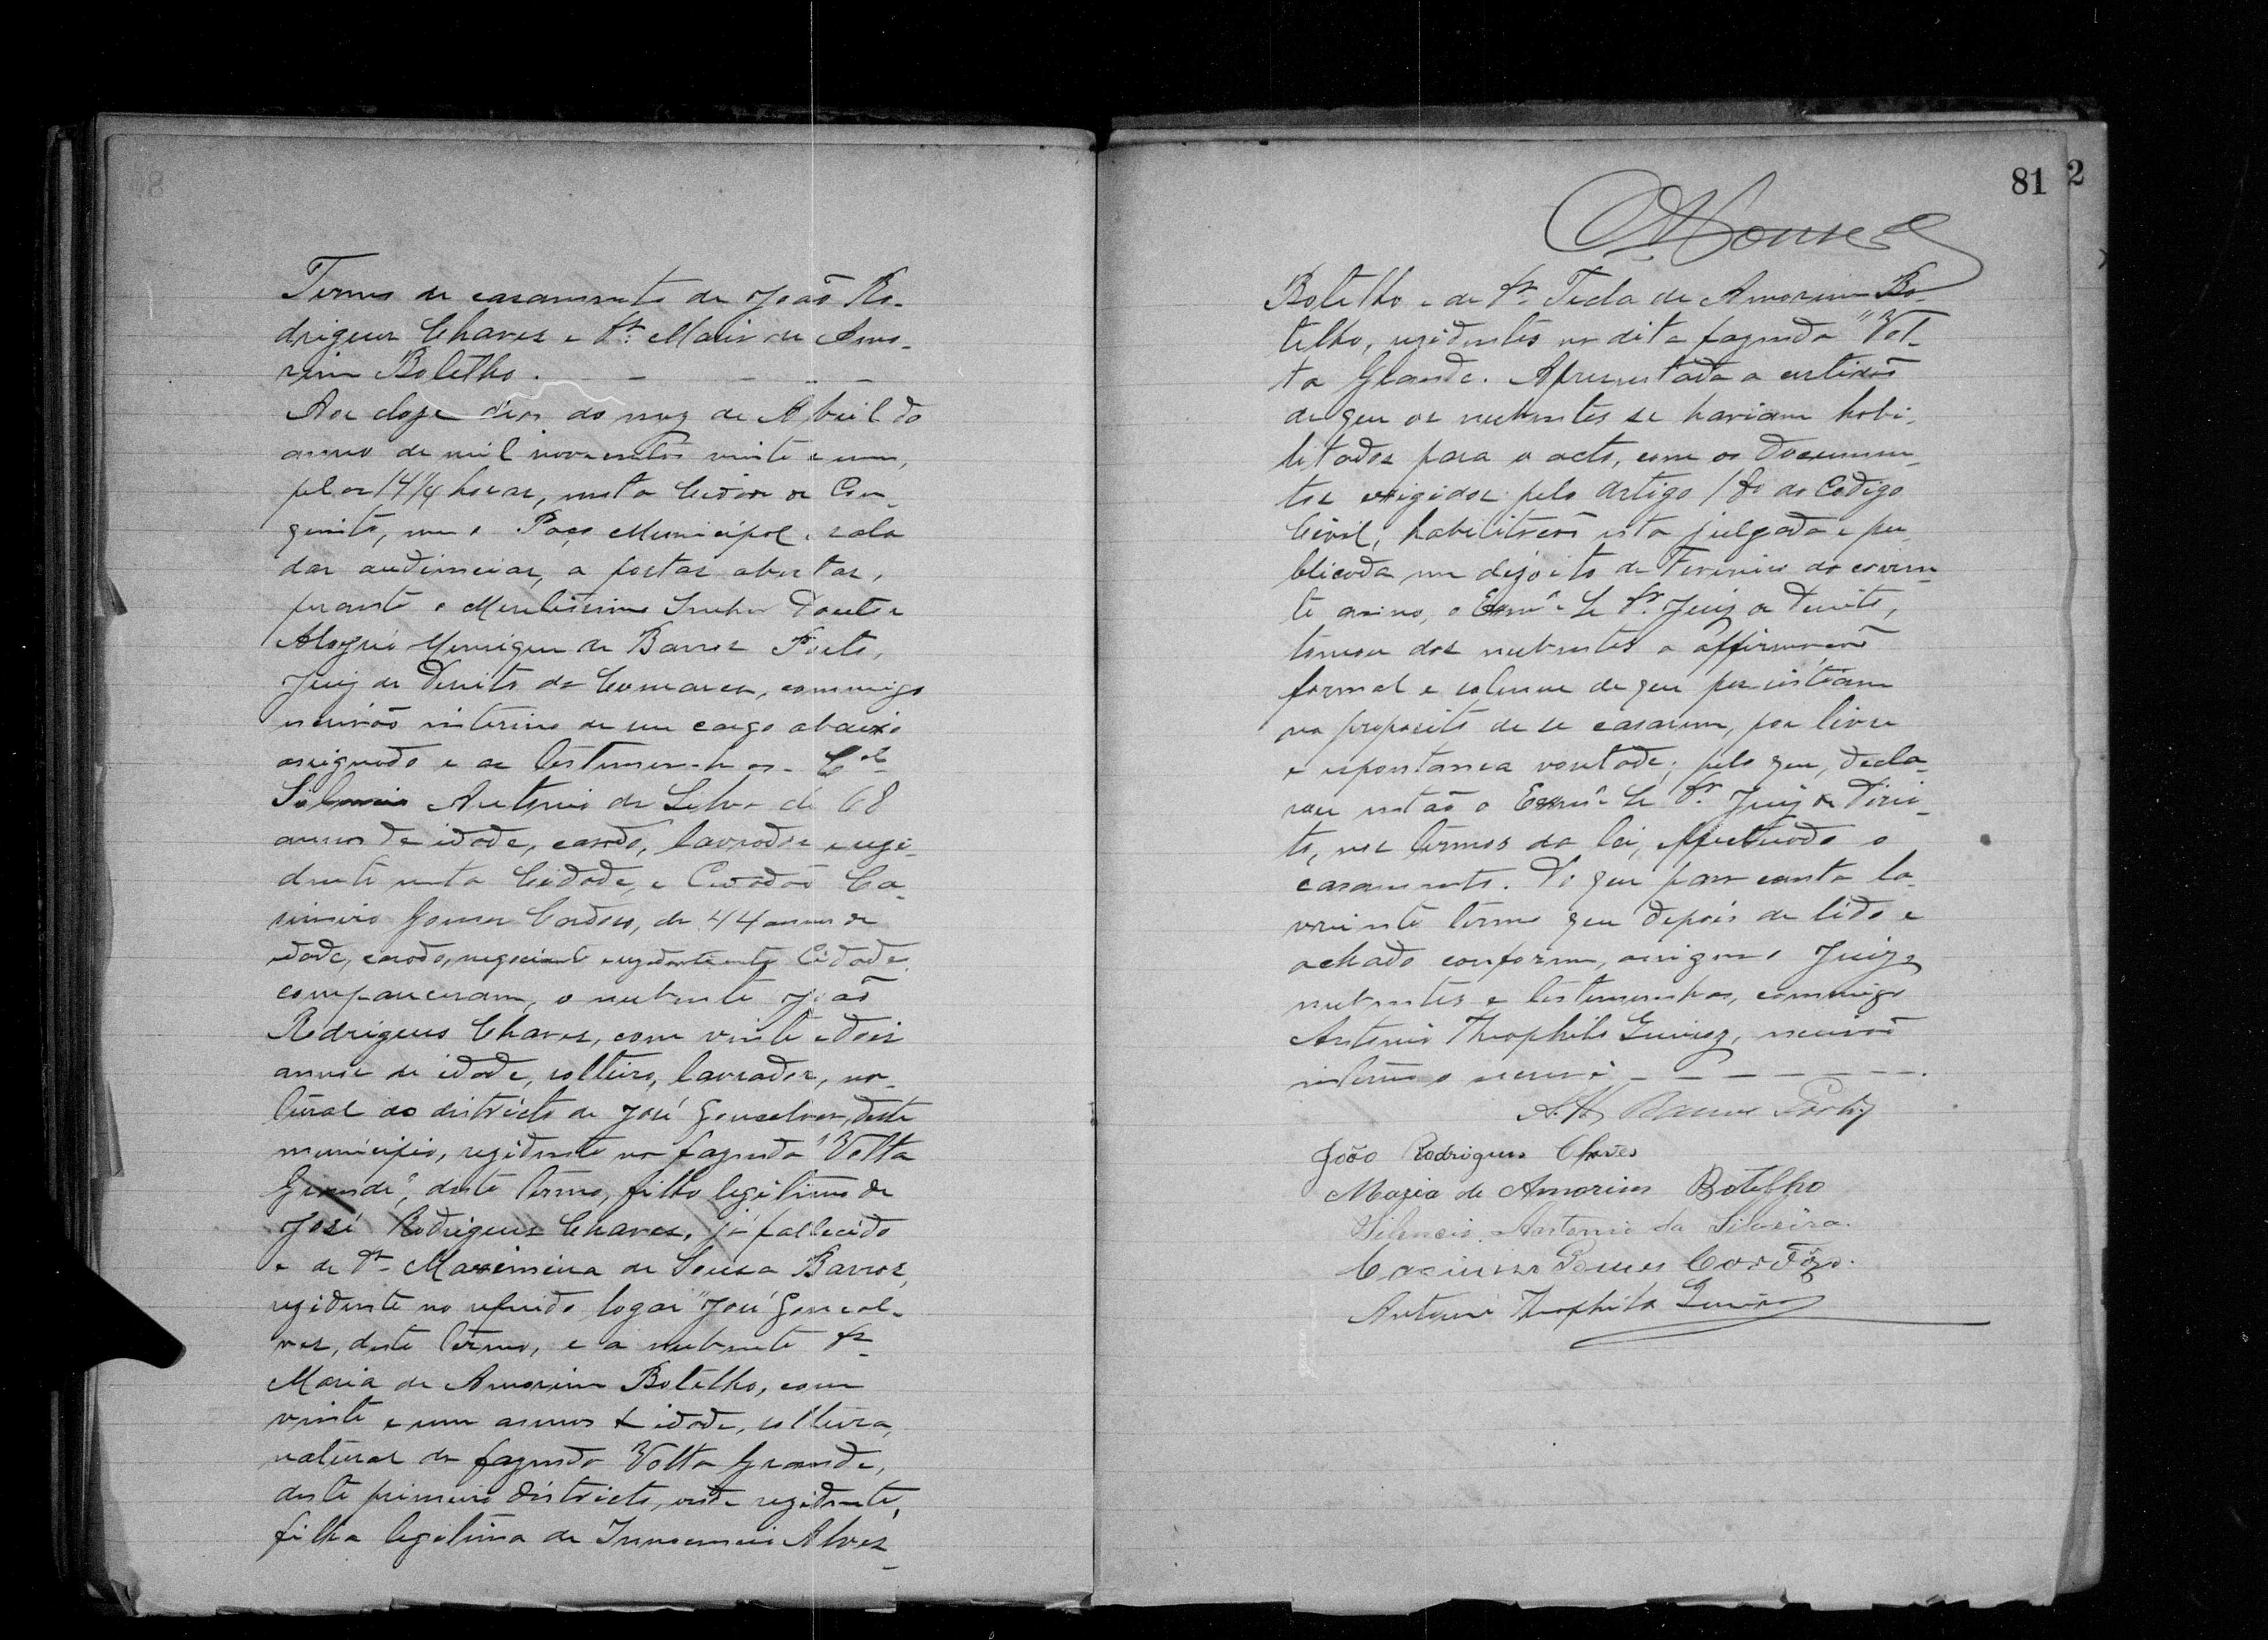 81 2
Termo de casamento de João Ro-
drigues Chaves e Dª Maria de Amo-
rim Botelho.
Aos doze dias do mez de Abril do
anno de mil novecentos vinte e um,
pelas 14 1/4 horas, nesta Cidade de Con-
quista, no Paço Municipal, sala
das audiencias, a portas abertas,
perante o Meretissimo Senhor Doutor
Henrique de Barros Porto,
Juiz de Direito da Comarca, commigo
escrivão interino de seu cargo abaixo
assignado e as testemunhas Cel
Antonio da Silva de 68
annos de idade, casado, lavrador e rezi-
dente nesta Cidade, e Cidadão Ca-
simiro Gomes Cardoso, de 44 annos de
idade, casado, negociante e rezidente nesta Cidade,
compareceram, o nubente João
Rodrigues Chaves, com vinte e dois
annos de idade, solteiro, lavrador, na-
tural do districto de José Gonçalves, deste
municipio, rezidente na fazenda "Volta
Grande", deste termo, filho legitimo de
José Rodrigues Chaves, já fallecido
e de Dª Maximina de Souza Barros,
rezidente no referido logar "José Gonçal-
ves, deste termo, e a nubente Dª
Maria de Amorim Botelho, com
vinte e um annos de idade, solteira,
natural da fazenda Volta Grande,
deste primeiro districto, onde rezidente,
filha legitima de Innocencio Alves
Botelho e de Dª Tecla de Amorim Bo-
telho, rezidentes na dita fazenda "Vol-
ta Grande. Apresentada a certidão
de que os nubentes se haviam habi-
litados para o acto, com os documen-
tos exigidos pelo artigo 180 do Codigo
Civil, habilitação esta julgada e pu-
blicada em dezoito de Fevereiro do corren-
te anno, o Exmº Sr Dr. Juiz de Direito,
tomou dos nubentes a affirmação
formal e solemne de que persistiam
no proposito de se casarem, por livre
e espontanea vontade; pelo que, decla-
rou então o Exmº Sr Dr. Juiz de Direi-
to, nos termos da lei, effectuado o
casamento. Do que para constar la-
vrei este termo que depois de lido e
achado conforme, assignam o Juiz,
nubentes e testemunhas, commigo
Antonio Theophilo escrivão
interino o escrevi
A. H. Barros Porto
João Rodrigues Chaves
Maria de Amorim Botelho
Silencio Antonio da Silveira.
Casimiro Gomes Cardôzo.
Antonio Theophilo